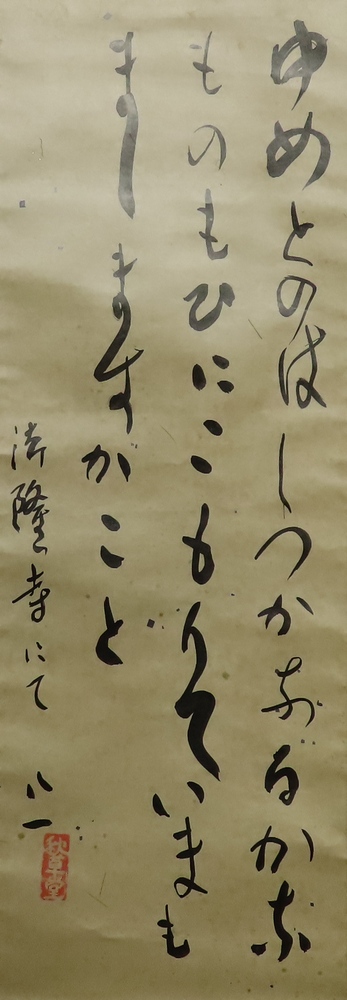 ゆめとのはしつかなるかな
ものもひにこもりていまも
ましますがこと
法隆寺にて 八一
秋艸堂